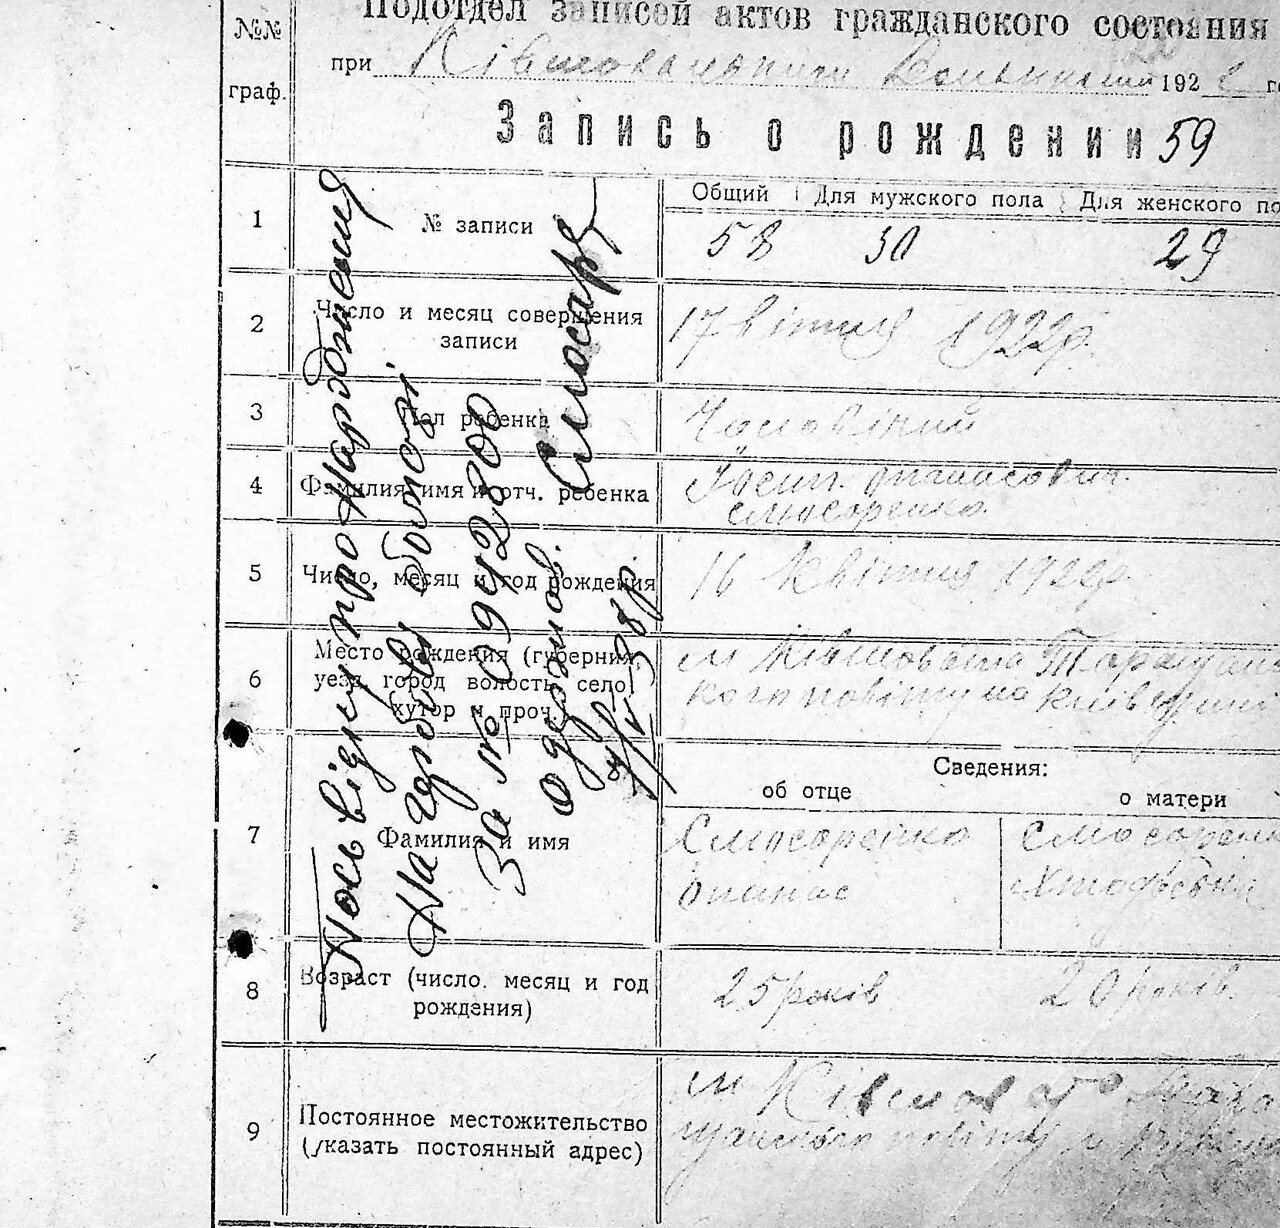 №№
граф.
Подотдел записей актов гражданского состояния
при 192 2
Запись о рождении 59
1
№ записи
Общий Для мужского пола Для женского по
58 30 29
2
Число и месяц совершения
записи
17 квітня 1922р.
3
Пол ребенка
Чоловічий
4
Фамилия, имя и отч. ребенка
Йосип. Опанасович.
Слюсаренко.
5
Число, месяц и год рождения
16 Квітня 1922р.
6
Место рождения (губерния,
уезд, город волость, село,
хутор и проч.
м Ківшовата Таращанс
кого повіту на Київщині
7
Фамилия и имя
Сведения:
об отце
о матери
Слюсаренко
Опанас
Слюсаренко
8
Возраст (число. месяц и год
рождения)
25 років
20 років.
9
Постоянное местожительство
(указать постоянный адрес)
м Ківшовато Тара
щанського повіту
Посвідку про Народження
На
За № 0942800
одержав.
Слюсар